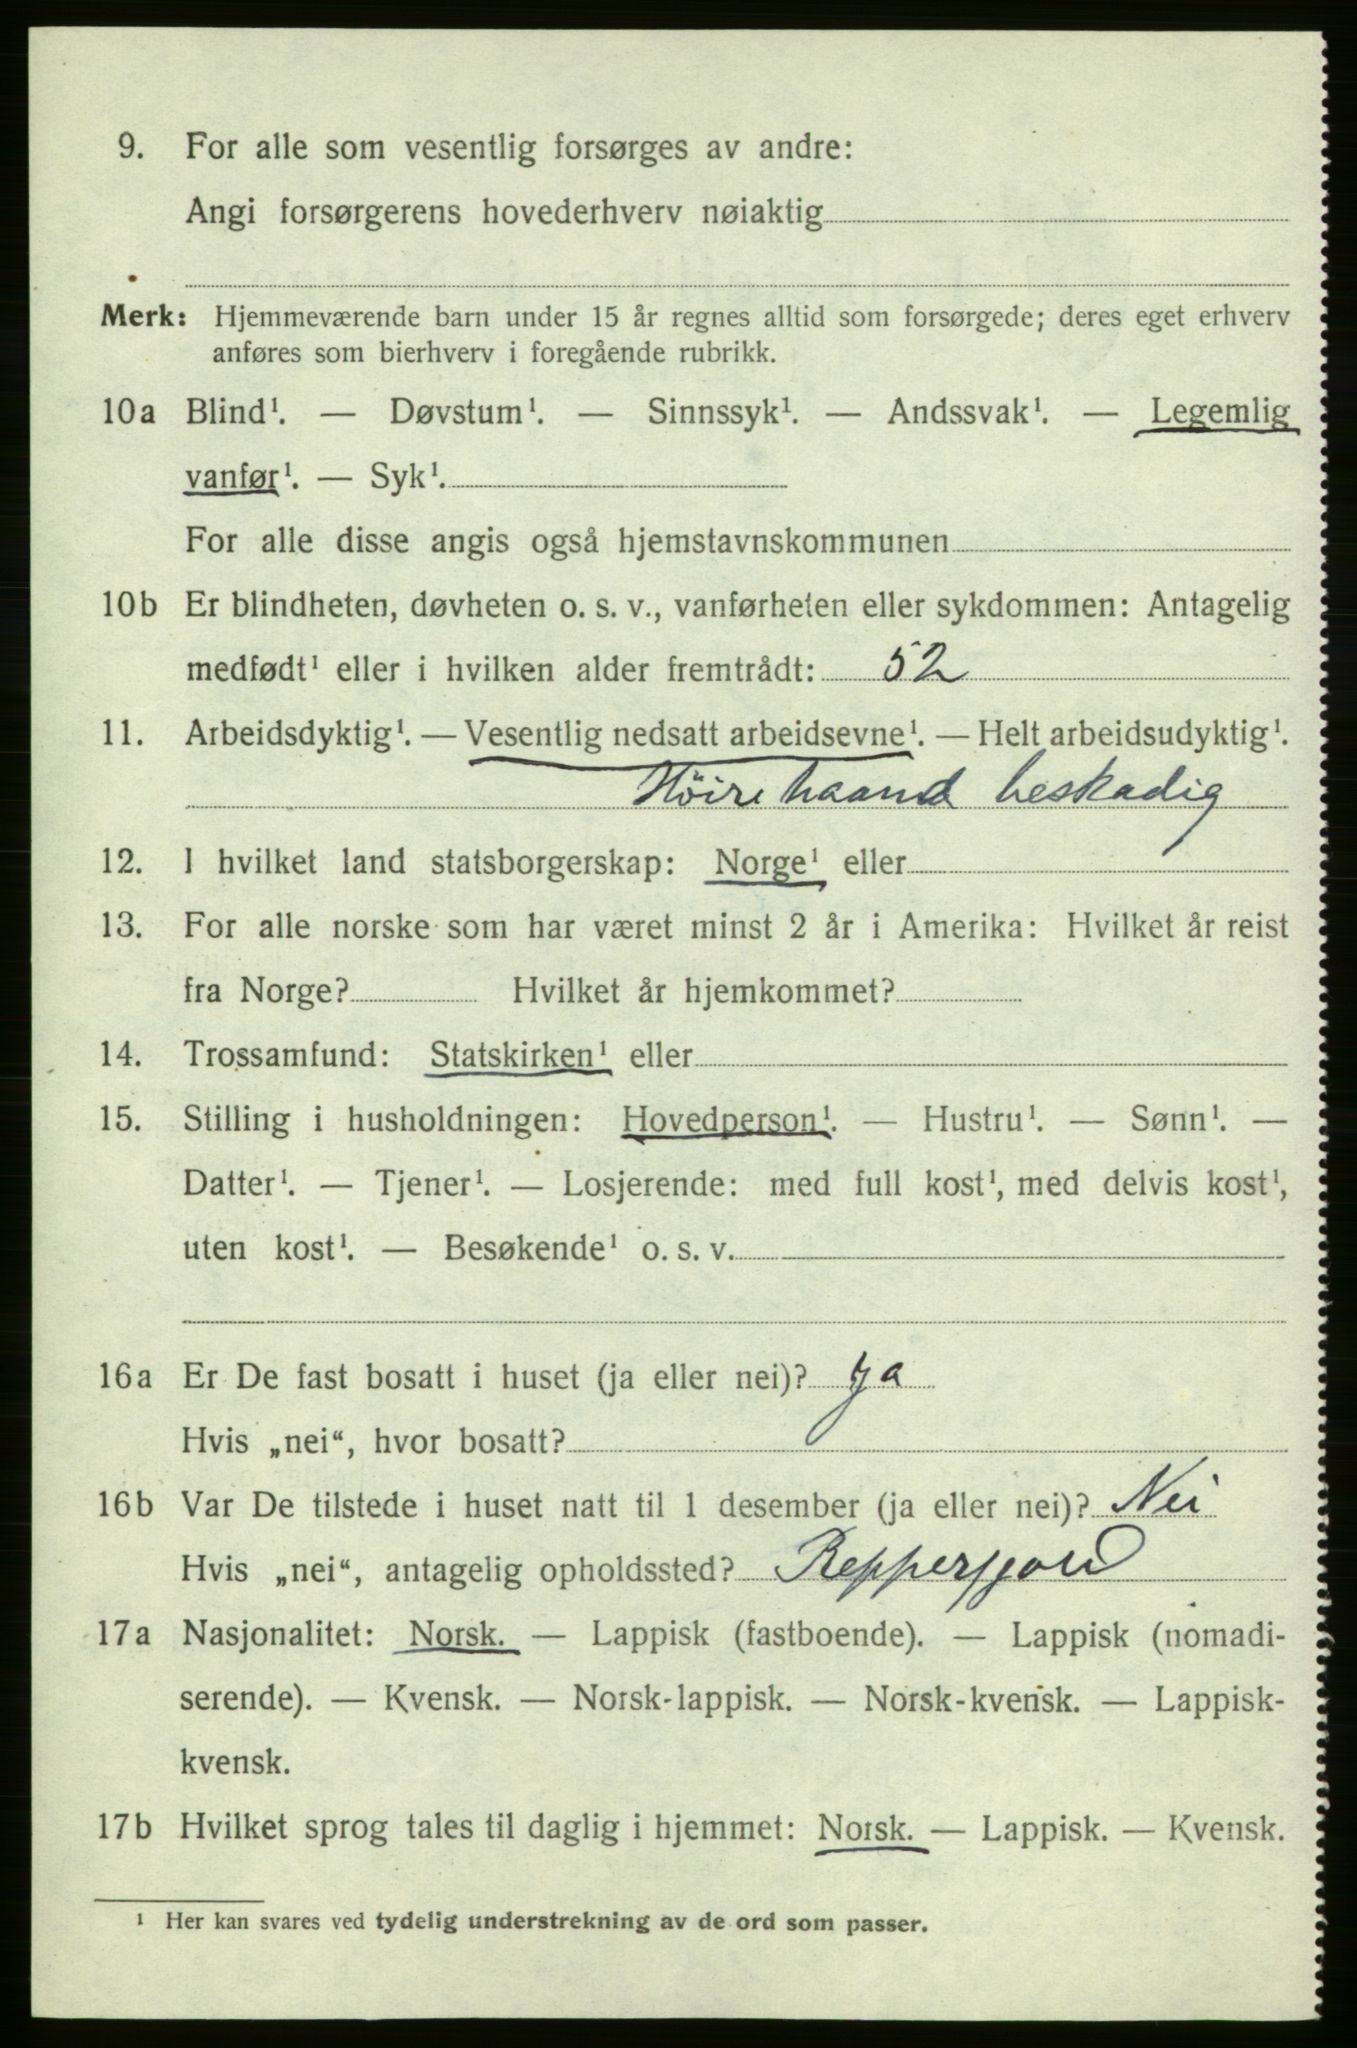 9. For alle som vesentlig forsørges av andre:
Angi forsørgerens hovederhverv nøiaktig
Merk: Hjemmeværende barn under 15 år regnes alltid som forsørgede; deres eget erhverv
anføres som bierhverv i foregående rubrikk.
10a Blind¹. — Døvstum¹. — Sinnssyk¹. — Andssvak¹. — Legemlig
vanfør¹. — Syk¹.
For alle disse angis også hjemstavnskommunen
10b Er blindheten, døvheten o. s. v., vanførheten eller sykdommen: Antagelig
medfødt¹ eller i hvilken alder fremtrådt: 52
11. Arbeidsdyktig¹. — Vesentlig nedsatt arbeidsevne¹. — Helt arbeidsudyktig¹.
Høire haand beskadig
12. I hvilket land statsborgerskap: Norge¹ eller
13. For alle norske som har været minst 2 år i Amerika: Hvilket år reist
fra Norge? Hvilket år hjemkommet?
14. Trossamfund: Statskirken¹ eller
15. Stilling i husholdningen: Hovedperson¹. — Hustru¹. — Sønn¹. —
Datter¹. — Tjener¹. — Losjerende: med full kost¹, med delvis kost¹,
uten kost¹. — Besøkende¹ o. s. v.
16a Er De fast bosatt i huset (ja eller nei)? ja
Hvis „nei“, hvor bosatt?
16b Var De tilstede i huset natt til 1 desember (ja eller nei)? Nei
Hvis „nei“, antagelig opholdssted? Repperfjord
17a Nasjonalitet: Norsk. — Lappisk (fastboende). — Lappisk (nomadi-
serende). — Kvensk. — Norsk-lappisk. — Norsk-kvensk. — Lappisk-
kvensk.
17b Hvilket sprog tales til daglig i hjemmet: Norsk. — Lappisk. — Kvensk.
¹ Her kan svares ved tydelig understrekning av de ord som passer.